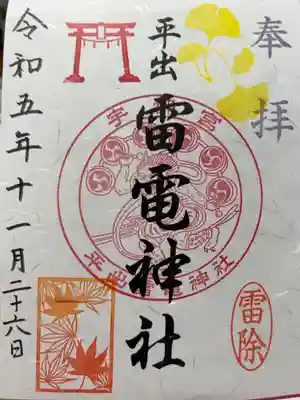 奉拝
平出
雷電神社
宇都宮
平出雷電神社
雷除
令和五年十一月二十六日